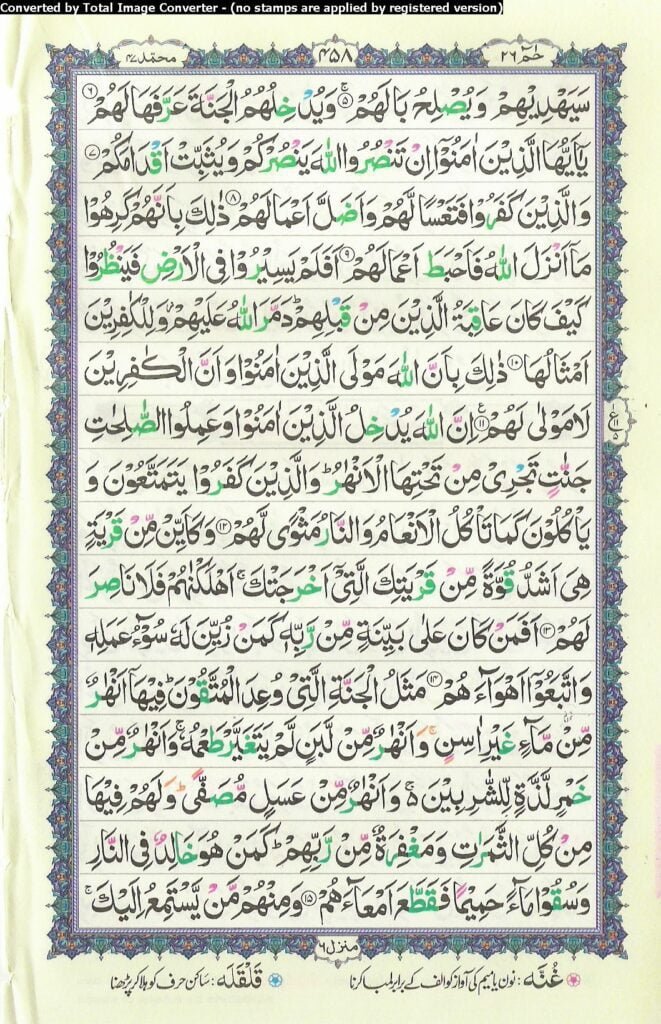 Converted by Total Image Converter - (no stamps are applied by registered version)
حٰمٓ ٢٦
٤٥٨
محمّد ٤٧
سَيَهْدِيْهِمْ وَيُصْلِحُ بَالَهُمْ ۚ‏ ٥ وَيُدْخِلُهُمُ الْجَنَّةَ عَرَّفَهَا لَهُمْ ٦
يٰۤاَيُّهَا الَّذِيْنَ اٰمَنُوْۤا اِنْ تَنْصُرُوا اللّٰهَ يَنْصُرْكُمْ وَيُثَبِّتْ اَقْدَامَكُمْ ٧
وَالَّذِيْنَ كَفَرُوْا فَتَعْسًا لَّهُمْ وَاَضَلَّ اَعْمَالَهُمْ ٨ ذٰلِكَ بِاَنَّهُمْ كَرِهُوْا
مَاۤ اَنْزَلَ اللّٰهُ فَاَحْبَطَ اَعْمَالَهُمْ ٩ اَفَلَمْ يَسِيْرُوْا فِى الْاَرْضِ فَيَنْظُرُوْا
كَيْفَ كَانَ عَاقِبَةُ الَّذِيْنَ مِنْ قَبْلِهِمْ ؕ دَمَّرَ اللّٰهُ عَلَيْهِمْ ؗ وَلِلْكٰفِرِيْنَ
اَمْثَالُهَا ١٠ ذٰلِكَ بِاَنَّ اللّٰهَ مَوْلَى الَّذِيْنَ اٰمَنُوْا وَاَنَّ الْكٰفِرِيْنَ
لَا مَوْلٰى لَهُمْ ١١ ع اِنَّ اللّٰهَ يُدْخِلُ الَّذِيْنَ اٰمَنُوْا وَعَمِلُوا الصّٰلِحٰتِ
جَنّٰتٍ تَجْرِىْ مِنْ تَحْتِهَا الْاَنْهٰرُ ؕ وَالَّذِيْنَ كَفَرُوْا يَتَمَتَّعُوْنَ وَ
يَاْكُلُوْنَ كَمَا تَاْكُلُ الْاَنْعَامُ وَالنَّارُ مَثْوًى لَّهُمْ ١٢ وَكَاَيِّنْ مِّنْ قَرْيَةٍ
هِىَ اَشَدُّ قُوَّةً مِّنْ قَرْيَتِكَ الَّتِىْۤ اَخْرَجَتْكَ ۚ اَهْلَكْنٰهُمْ فَلَا نَاصِرَ
لَهُمْ ١٣ اَفَمَنْ كَانَ عَلٰى بَيِّنَةٍ مِّنْ رَّبِّهٖ كَمَنْ زُيِّنَ لَهٗ سُوْٓءُ عَمَلِهٖ
وَاتَّبَعُوْۤا اَهْوَآءَهُمْ ١٤ مَثَلُ الْجَنَّةِ الَّتِىْ وُعِدَ الْمُتَّقُوْنَ ؕ فِيْهَاۤ اَنْهٰرٌ
مِّنْ مَّآءٍ غَيْرِ اٰسِنٍ ۚ وَاَنْهٰرٌ مِّنْ لَّبَنٍ لَّمْ يَتَغَيَّرْ طَعْمُهٗ ۚ وَاَنْهٰرٌ مِّنْ
خَمْرٍ لَّذَّةٍ لِّلشّٰرِبِيْنَ ۚ۬ وَاَنْهٰرٌ مِّنْ عَسَلٍ مُّصَفًّى ؕ وَلَهُمْ فِيْهَا
مِنْ كُلِّ الثَّمَرٰتِ وَمَغْفِرَةٌ مِّنْ رَّبِّهِمْ ؕ كَمَنْ هُوَ خَالِدٌ فِى النَّارِ
وَسُقُوْا مَآءً حَمِيْمًا فَقَطَّعَ اَمْعَآءَهُمْ ١٥ وَمِنْهُمْ مَّنْ يَّسْتَمِعُ اِلَيْكَ ۚ
منزل ٦
غُنَّہ : نون یا میم کی آواز کو الف کے برابر لمبا کرنا
قلقلہ : ساکن حرف کو ہلا کر پڑھنا